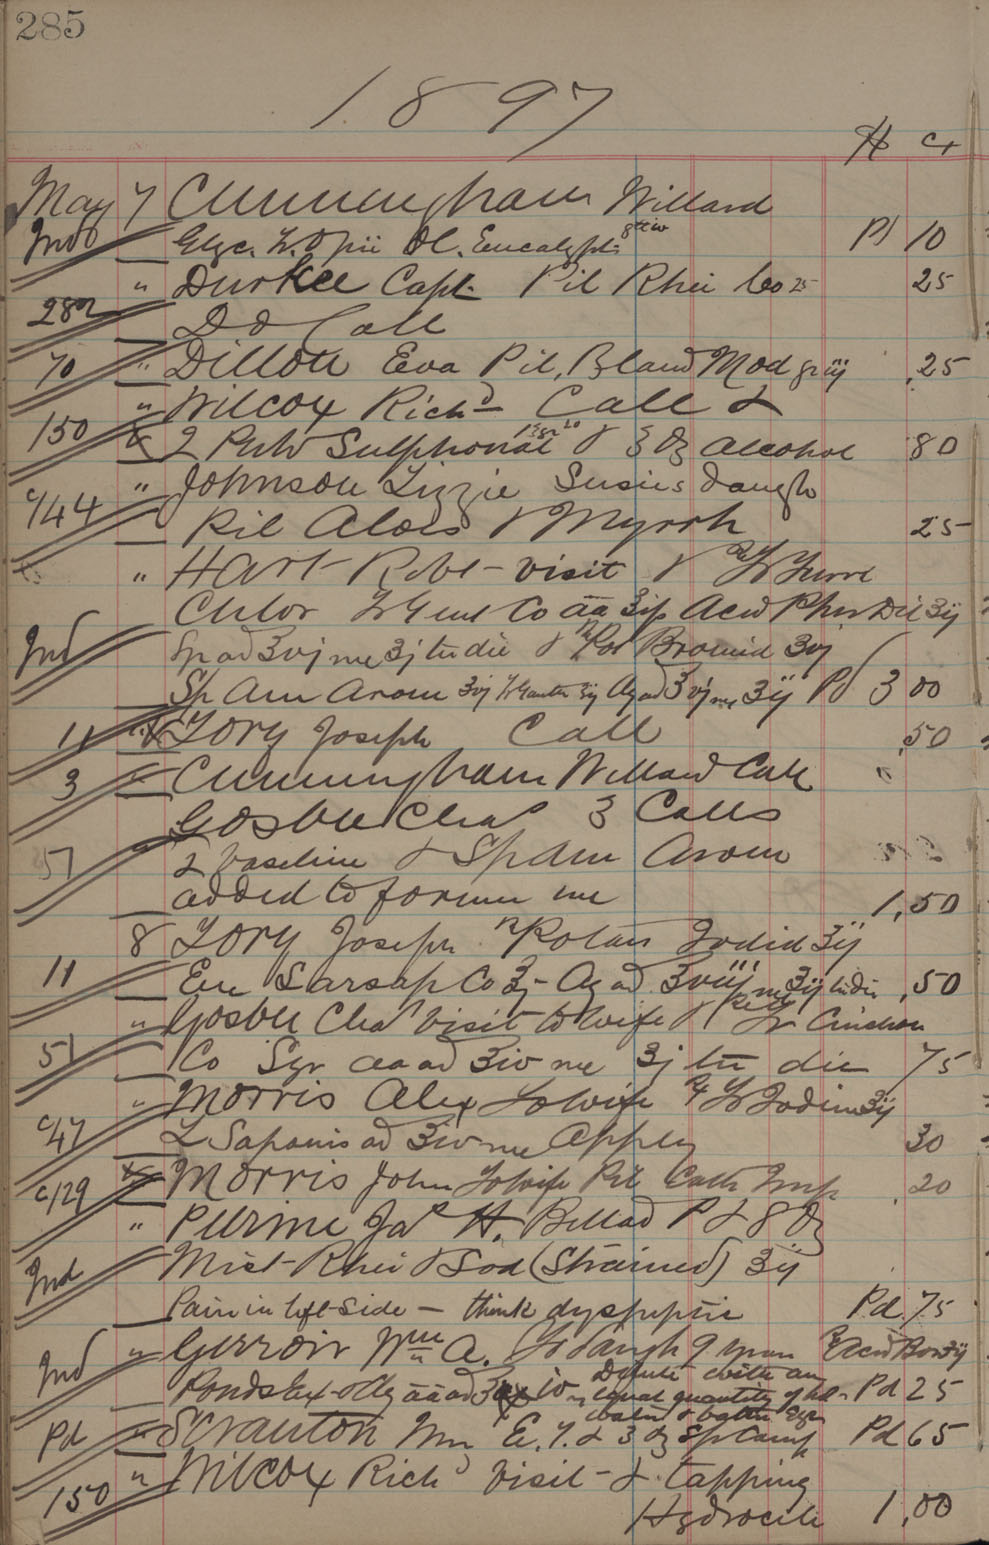 285
1897
# Cr
May 7 Cunningham Willard
Ind Glyc. Tr. Opii Ol. Eucalypti Pd 10
" Durkee Capt Pil Rhei Co 25 25
282 Do Call
70 " Dillon Eva Pil, Blaud Mod gr iij .25
" Wilcox Richd Call &
150 & 2 Pulv Sulphonal & 3 Oz Alcohol 80
" Johnson Lizzie Susies daugh
c/44 Pil Aloes & Myrrh 25
" Hart Robt - visit & Rx Tr Ferri
Chlor Tr Gent Co āā ℥ss Acid Phos Dil ʒij
Ind Sp ad ℥vj me ʒj ter die & Rx Pot Bromid ʒvj
Sp Am Arom ʒvj Tr Gent ʒij Aq ad ℥vj me ʒij Pd 3 00
11 " Tory Joseph Call .50
3 " Cunningham Willard Call "
Gosbee Chas 3 Calls
51 & Vaseline & Sp Am Arom
added to former me 1,50
8 Tory Joseph Rx Potass Iodid ʒij
11 Ext Sarsap Co ℥j - Aq ad ℥viij me ʒij ter die .50
" Gosbee Chas Visit to Wife & Rx Tr Cinchon
51 Co Syr aa ad ℥iv me ʒj ter die 75
" Morris Alex To Wife Rx Tr Iodine ʒij
c/47 L Saponis ad ℥iv me Apply 30
c/29 " Morris John To Wife Pil Cath Imp .20
" Purine Jas H. Bellad P & 8 Oz
Ind Mist Rhei & Sod (Strained) ʒij
Pain in left side - think dyspeptic Pd 75
" Gerroir Wm A. To daugh 9 years Rx Acid Bor ʒij
Ind Ponds Ext - Aq āā ad ℥iv Dilute with an equal quantity of hot water & bathe eyes Pd 25
Pd " Scranton Wm E. 7. & 3 Oz Sp Camp Pd 65
" Wilcox Richd Visit & tapping
150 Hydrocele 1,00